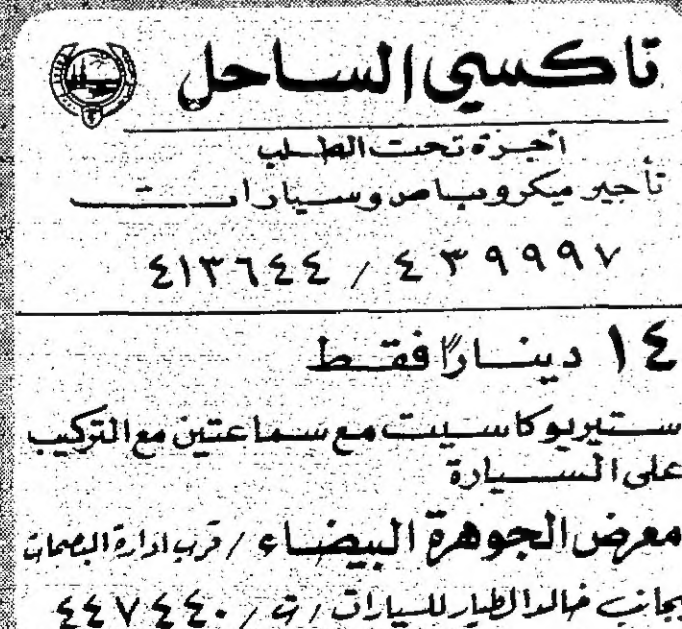 تاكسي الساحل
أجرة تحت الطلب
تأجير ميكروباص وسيارات
٤١٣٦٤٤ / ٤٣٩٩٩٧
١٤ دينارًا فقط
ستيريو كاسيت مع سماعتين مع التركيب
على السيارة
معرض الجوهرة البيضاء / قرب ادارة البصمات
بجانب خالد الطيار للسيارات / ت / ٤٤٧٤٤٠